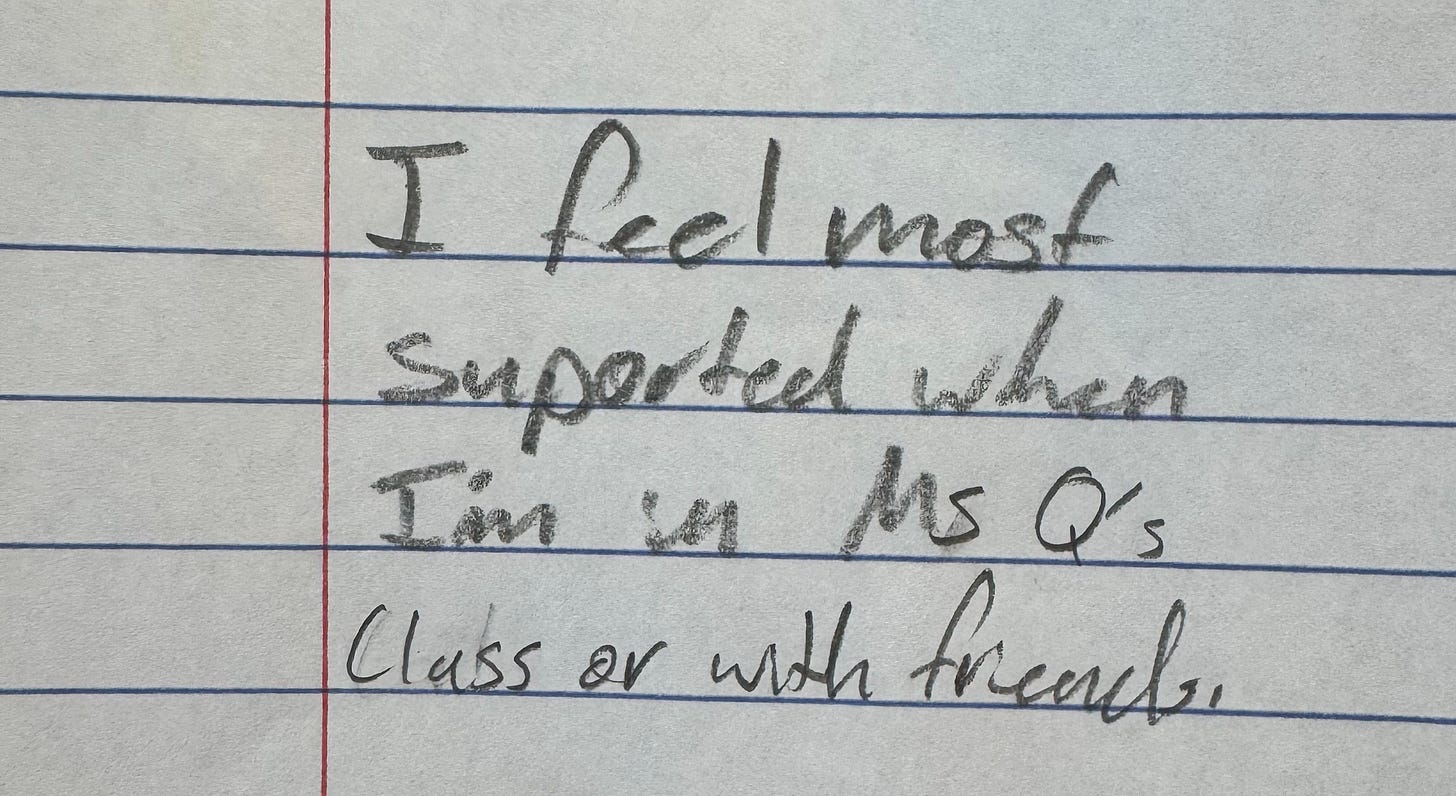 I feel most
suported when
I'm in Ms Q's
Class or with friends.